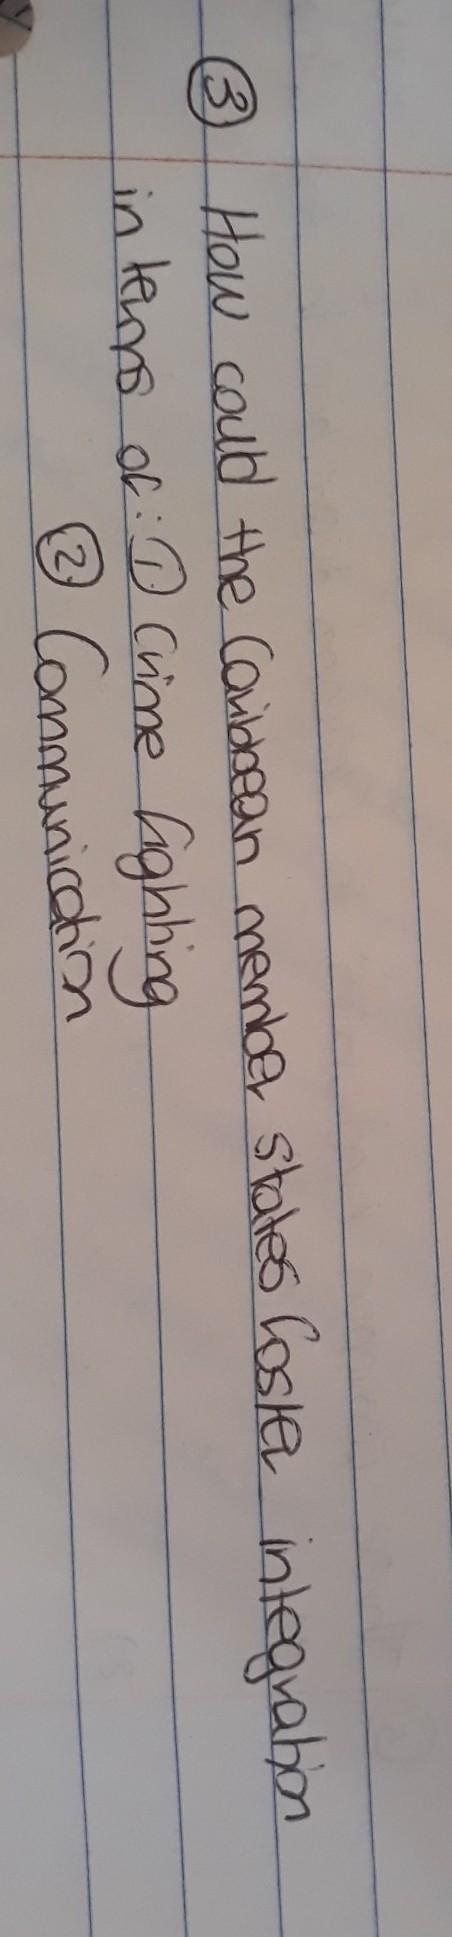 ③ How could the Caribbean member states foster integration
in terms of: ① Crime fighting
② Communication